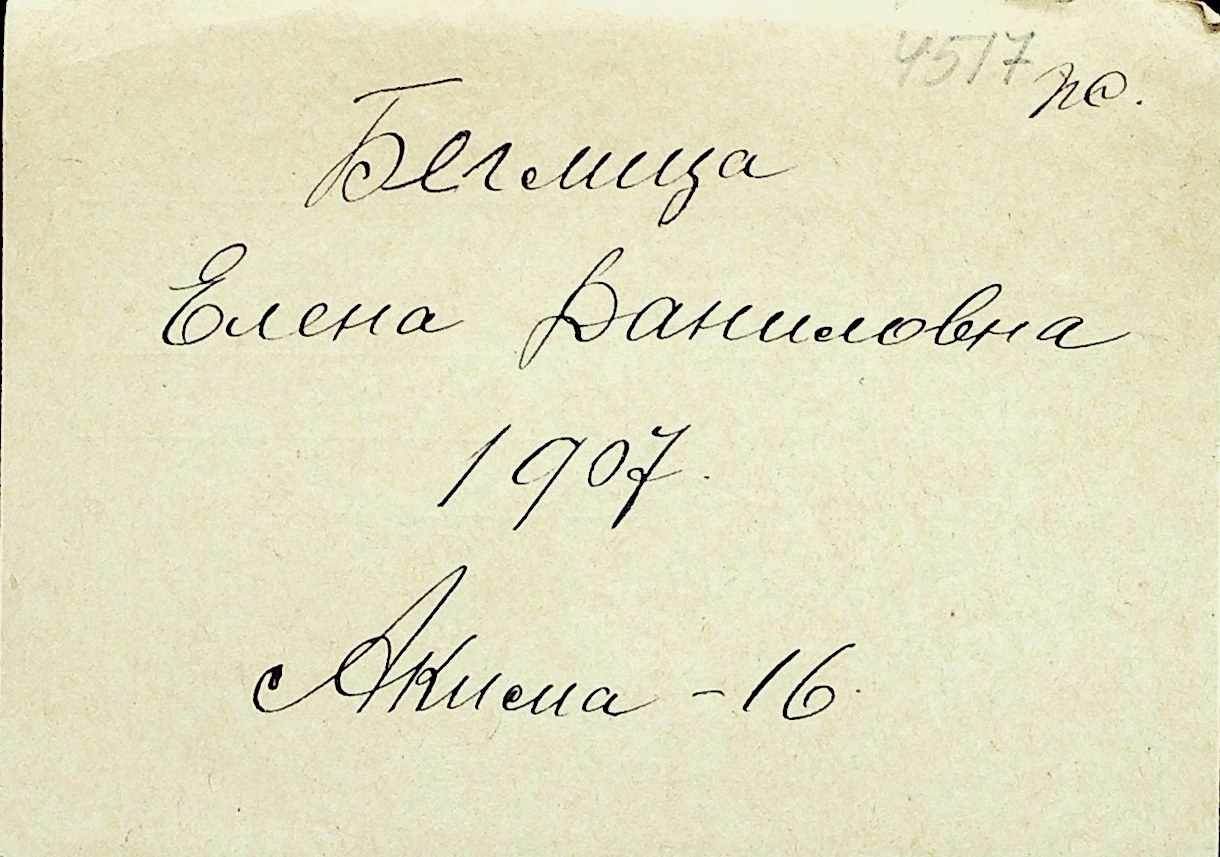 4517 рс.
Беглица
Елена Даниловна
1907.
Акима - 16.